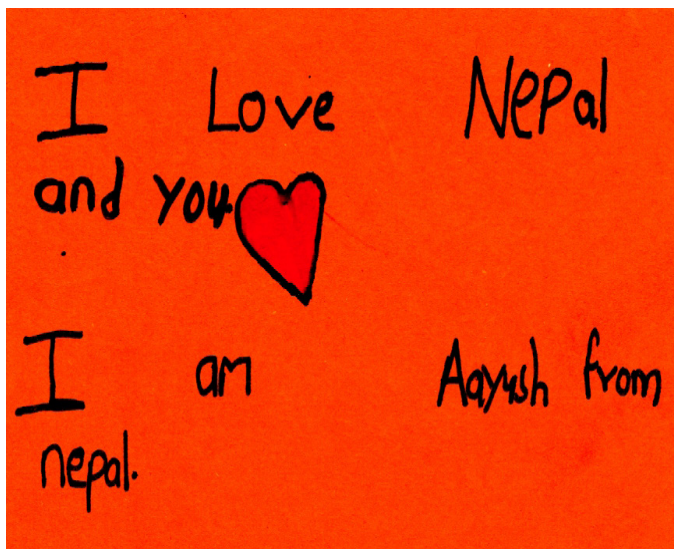 I Love Nepal
and you
I am Aayush from
nepal.